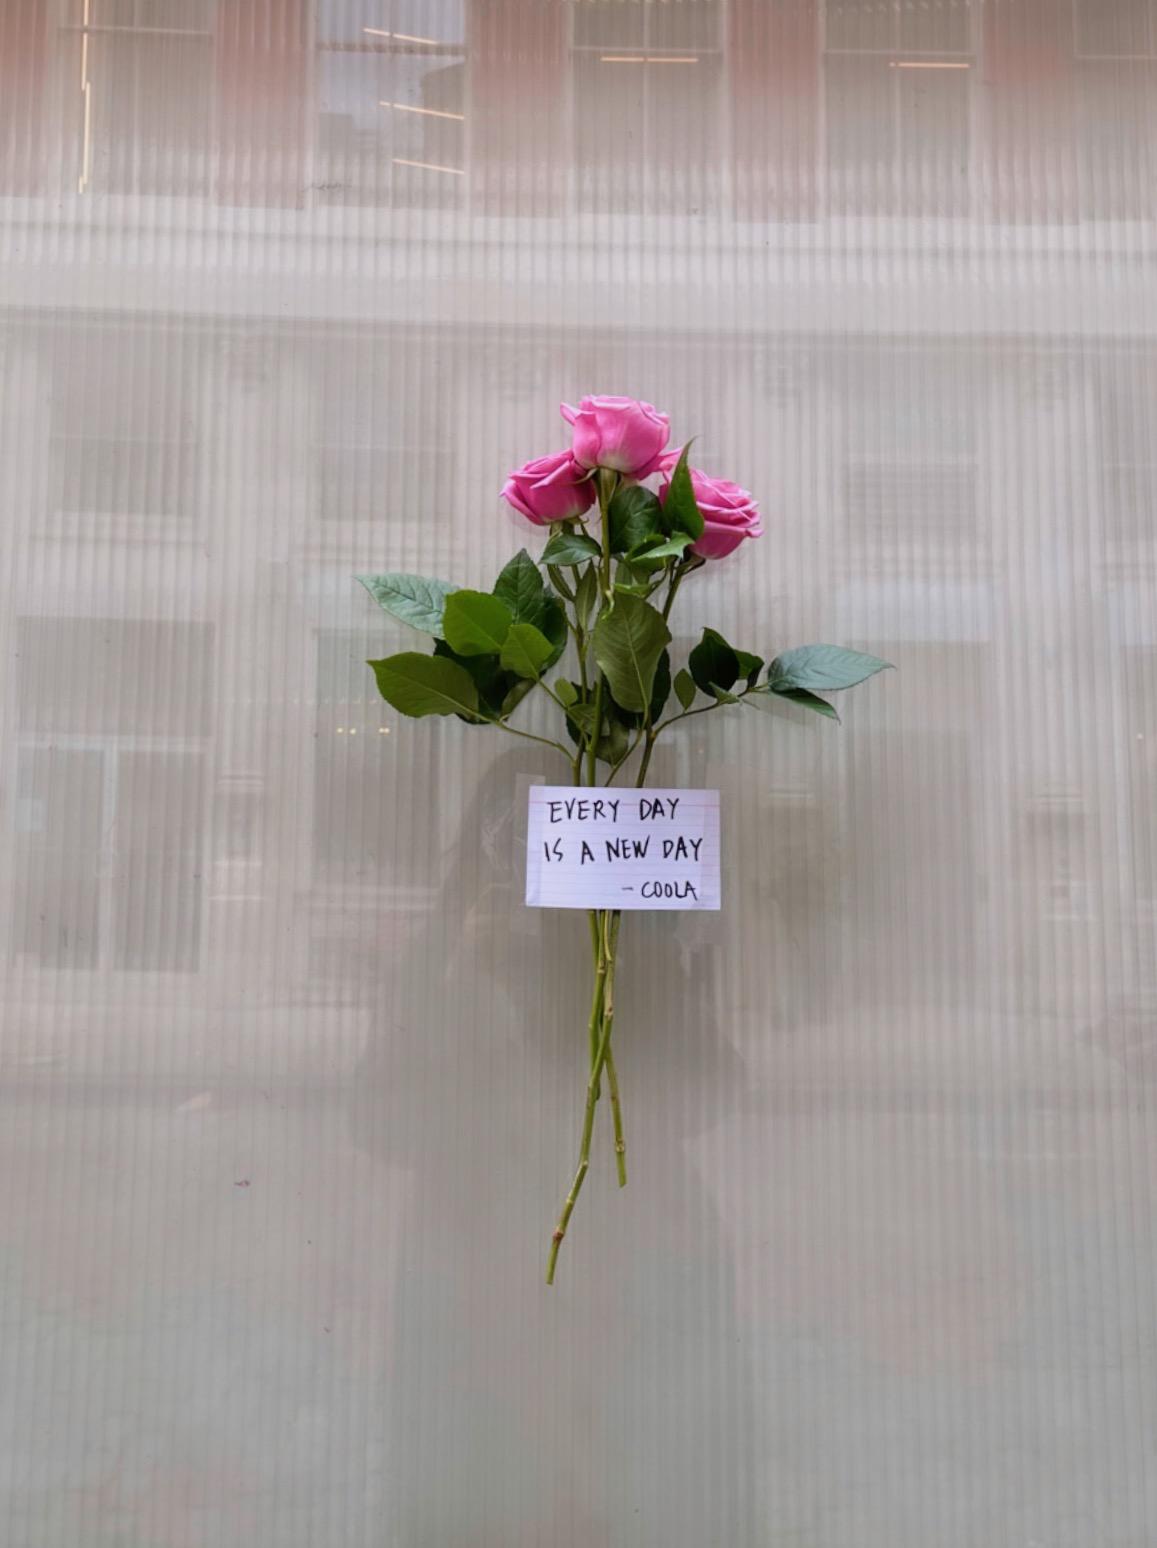 EVERY DAY
IS A NEW DAY
- COOLA